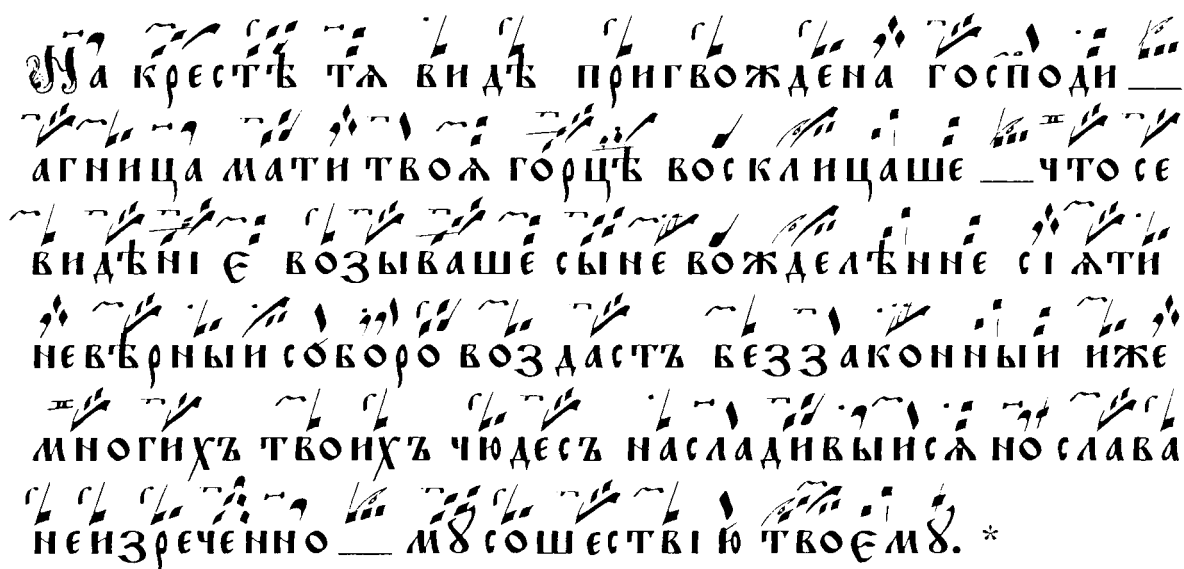 На крестѣ тѧ видѣ пригвождена господи
агница мати твоѧ горцѣ восклицаше что се
видѣніе возываше сыне вожделѣнне сіѧ ти
невѣрныи соборо воздастъ беззаконныи иже
многихъ твоихъ чюдесъ насладивыисѧ но слава
неизреченно мꙋ сошествію твоемꙋ. *